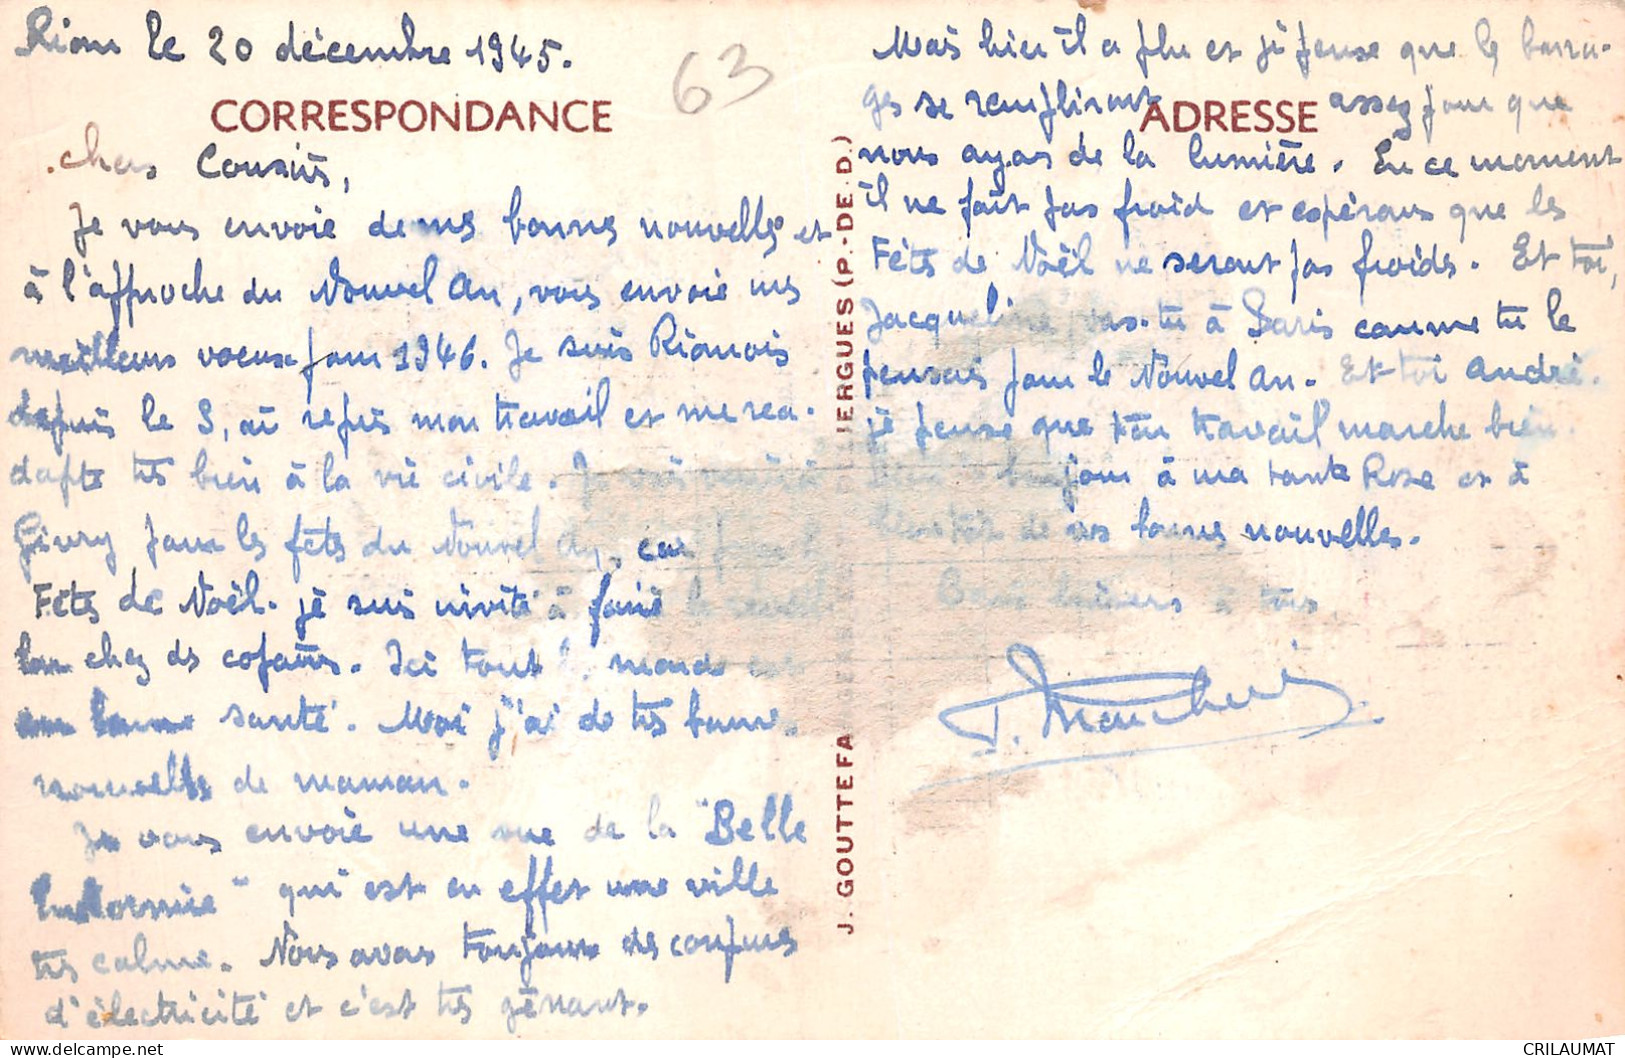 Riom le 20 décembre 1945.
63
CORRESPONDANCE
Chers Cousins,
Je vous envoie de mes bonnes nouvelles et
à l'approche du Nouvel An, vous envoie mes
meilleurs voeux pour 1946. Je suis Riomois
depuis le 3, ai repris mon travail et me réa-
dapte très bien à la vie civile. Je
Givry pour les fêtes du Nouvel An, car pour
Fêtes de Noël. je suis invité à faire le réveil-
lon chez des copains. Ici tout le monde est
en bonne santé. Moi j'ai de très bonnes
nouvelles de maman.
Je vous envoie une vue de la "Belle
Endormie" qui est en effet une ville
très calme. Nous avons toujours des coupures
d'électricité et c'est très gênant.
J. GOUTTEFA ERGUES (P.-DE-D.)
ADRESSE
Mais hier il a plu et je pense que les barra-
ges se rempliront assez pour que
nous ayons de la lumière. En ce moment
il ne fait pas froid et espérons que les
Fêtes de Noël ne seront pas froides. Et toi,
Jacqueline vas-tu à Paris comme tu le
pensais pour le Nouvel An. Et toi André.
je pense que ton travail marche bien.
bonjour à ma tante Rose et à
bientôt de vos bonnes nouvelles.
Bons baisers à tous.